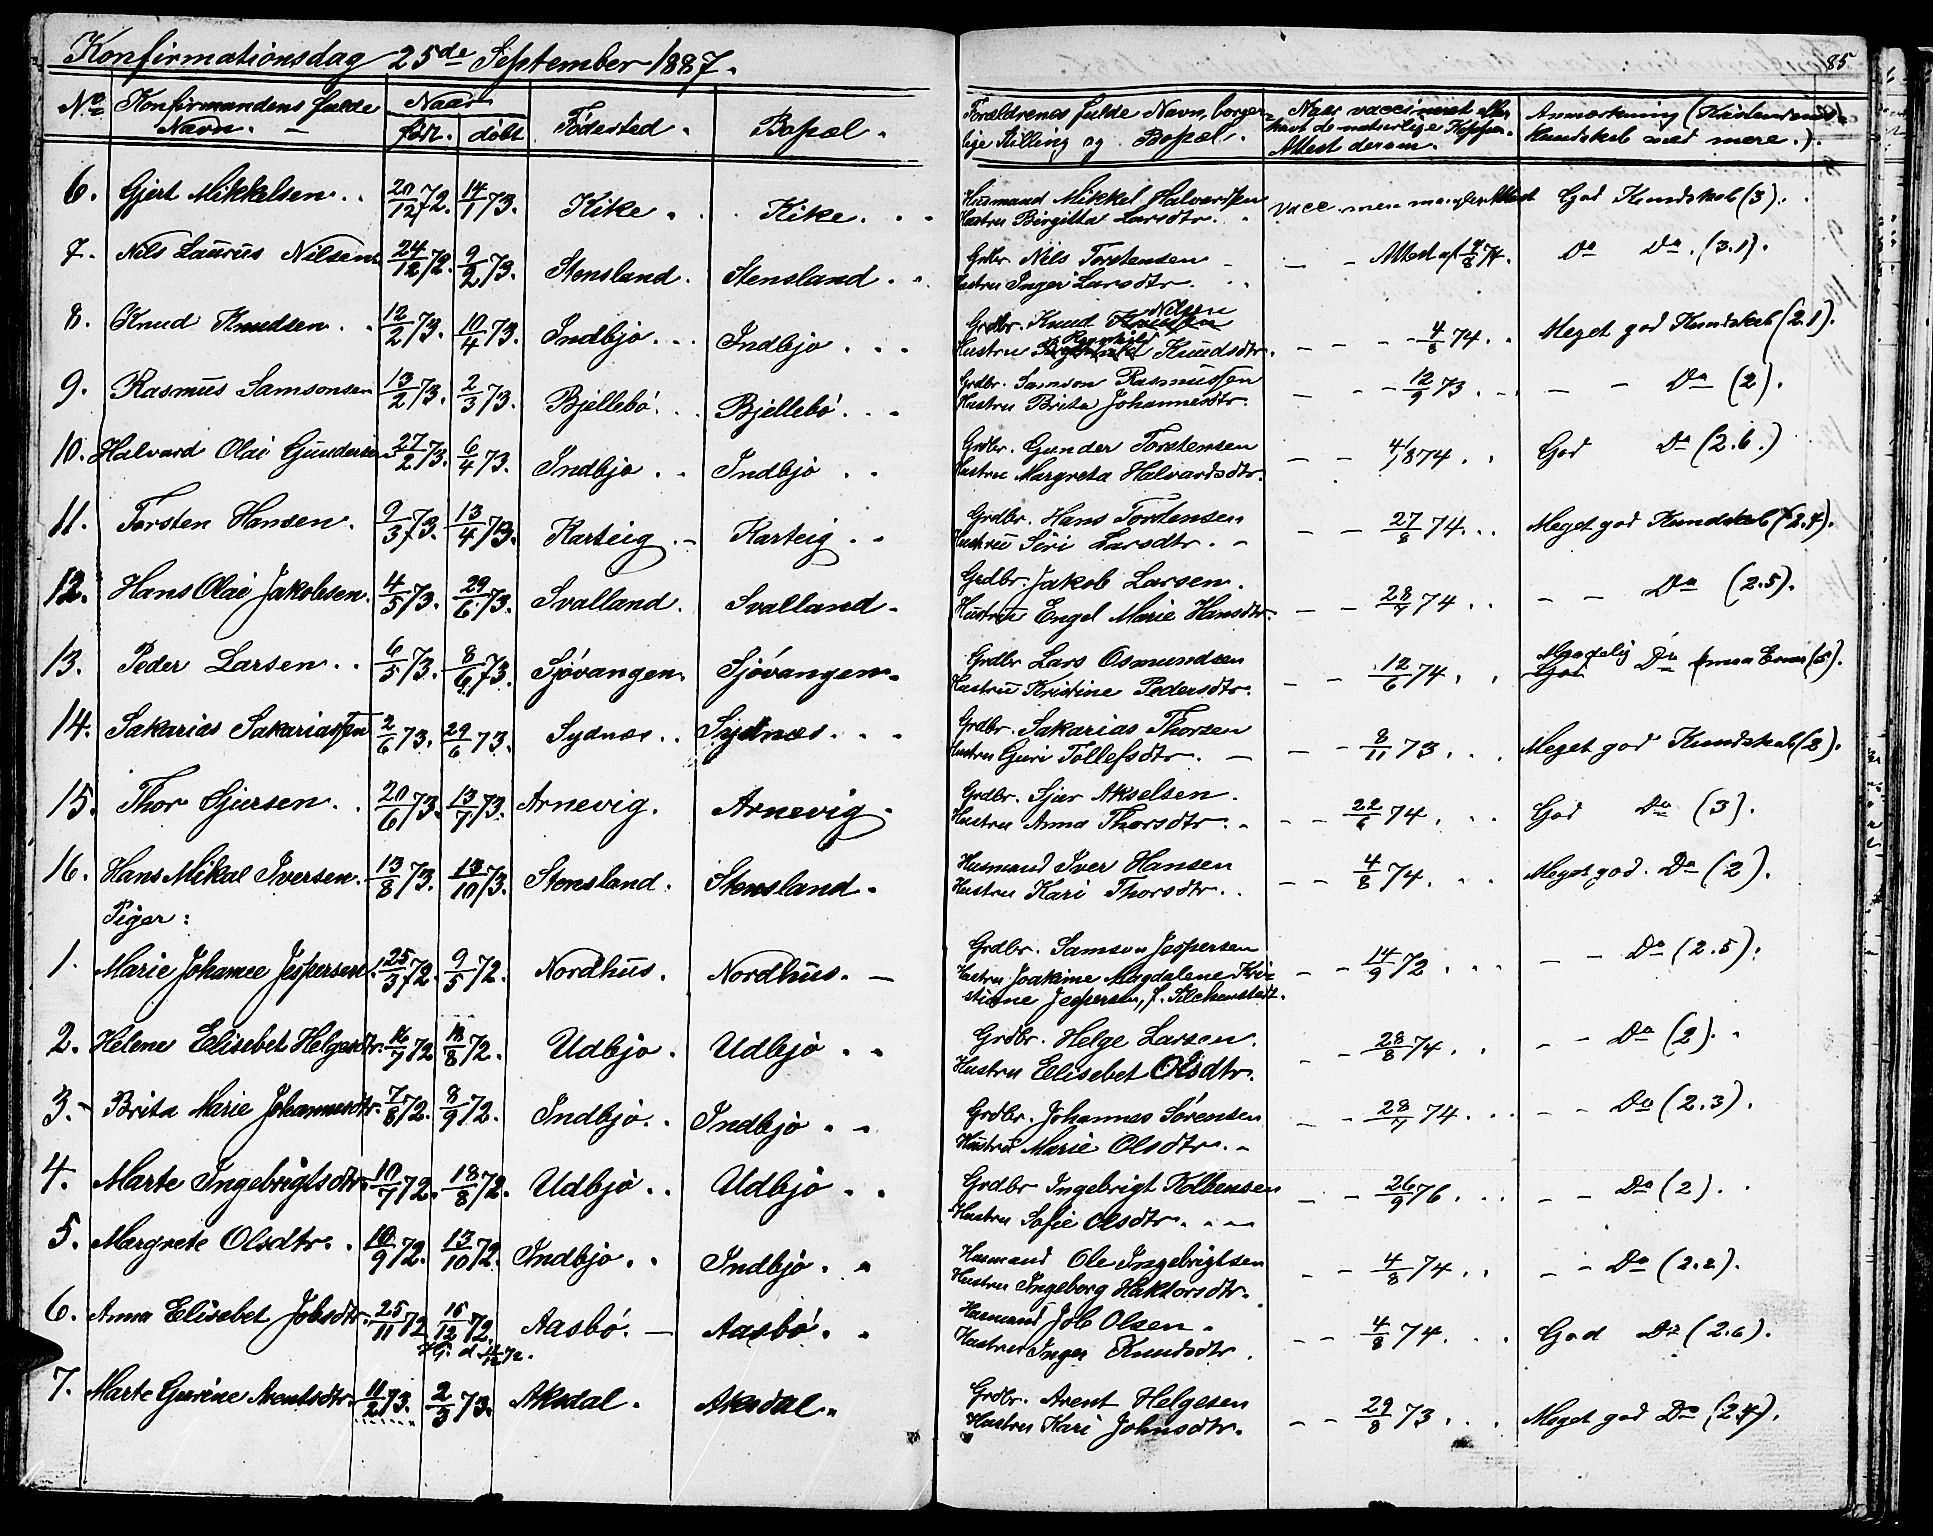 Konfirmationsdag 25de September 1887.
85
No Konfirmandens fulde Navn. Naar født. døbt Fødested. Bopæl. Forældrenes fulde Navn, borgerlige Stilling og Bopæl. Naar vaccineret eller havt de naturlige Kopper. Attest derom. Anmærkning (Kristendomskundskab med mere.).
6. Gjert Mikkelsen. 20/12 72. 14/1 73. Kike. Kike. Husmand Mikkel Halvardsen vacc. men mangler Attest God Kundskab (3).
Hustru Birgitta Larsdtr.
7. Nils Laurus Nilsen 24/12 72. 9/2 73. Stensland. Stensland. Grdbr. Nils Torstensen - - Attest af 4/8 74. Do Do. (3.1).
Hustru Inger Larsdtr.
8. Knud Knudsen. 12/2 73. 10/4 73. Indbjo. Indbjo. Grdbr. Knud Nilsen - - 4/8 74. Meget god Kundskab (2.1).
Hustru Knudsdtr.
9. Rasmus Samsonsen 13/2 73. 2/3 73. Bjellebø. Bjellebø. Grdbr. Samson Rasmussen - - 12/9 73. - - Do (2).
Hustru Brita Johannesdtr.
10. Halvard Olai Gundersen 27/2 73. 6/4 73. Indbjo. Indbjo. Grdbr. Gunder Torstensen - - 4/1 874. God Do (2.6.)
Hustru Margreta Halvardsdtr.
11. Torsten Hansen. 9/3 73. 13/4 73. Karteig. Karteig. Grdbr. Hans Torstensen - - 27/8 74. Meget god Kundskab (2.4).
Hustru Siri Larsdtr.
12. Hans Olai Jakobsen. 4/5 73. 29/6 73. Svalland. Svalland. Grdbr. Jakob Larsen. - - 28/7 74. - - Do (2.5).
Hustru Engel Marie Hansdtr.
13. Peder Larsen. 6/5 73. 8/6 73. Sjøvangen. Sjøvangen. Grdbr Lars Osmundsen - - 12/6 74. God Maadelig Do
Hustru Kristine Pedersdtr.
14. Sakarias Sakariassen 2/6 73. 29/6 73. Sydnæs. Sydnæs. Grdbr. Sakarias Thorsen - - 8/11 73. Meget god Kundskab (2).
Hustru Guri Tollefsdtr.
15. Thor Sjursen. 20/6 73. 13/7 73. Arnevig. Arnevig. Grdbr. Sjur Akselsen. - - 22/6 74. God Do (3).
Hustru Anna Thorsdtr.
16. Hans Mikal Iversen. 13/8 73. 13/10 73. Stensland. Stensland. Husmand Iver Hansen - - 4/8 74. Meget god. Do (2).
Hustru Kari Thorsdtr.
Piger:
1. Marie Johanne Jespersen. 25/3 72. 9/5 72. Nordhus. Nordhus. Grdbr. Samson Jespersen - - 14/9 72. - - Do (2.5).
Hustru Joakime Magdalene Kristiane Jespersen, f.
2. Helene Elisebet Helgesdtr. 16/7 72 18/8 72. Udbjo. Udbjo. Grdbr. Helge Larsen. - - 28/8 74. - - Do (2).
Hustru Elisebet Olsdtr.
3. Brita Marie Johannesdtr. 7/8 72. 8/9 72. Indbjo. Indbjo. Grdbr. Johannes Sørensen - - 28/7 74. - - Do (2.3).
Hustru Marie Olsdtr.
4. Marte Ingebrigtsdtr. 10/7 72. 18/8 72. Udbjo. Udbjo. Grdbr Ingebrigt Kolbensen - - 26/9 76. - - Do (2).
Hustru Sofie Olsdtr.
5. Margrete Olsdtr. 10/9 72. 13/10 72. Indbjo. Indbjo. Husmand Ole Ingebrigtsen - - 4/8 74. - - Do (2.2).
Hustru Ingeborg Haktorsdtr.
6. Anna Elisebet Jobsdtr. 25/11 72 15/12 72. Aasbø. Aasbø. Husmand Job Olsen. - - 4/8 74. God Do (2.6).
Hustru Inger Knudsdtr.
7. Marte Gurine Arentsdtr. 11/2 73. 2/3 73. Aksdal. Aksdal. Grdbr. Arent Helgesen - - 29/8 73. Meget god Do (2.4).
Hustru Kari Johnsdtr.